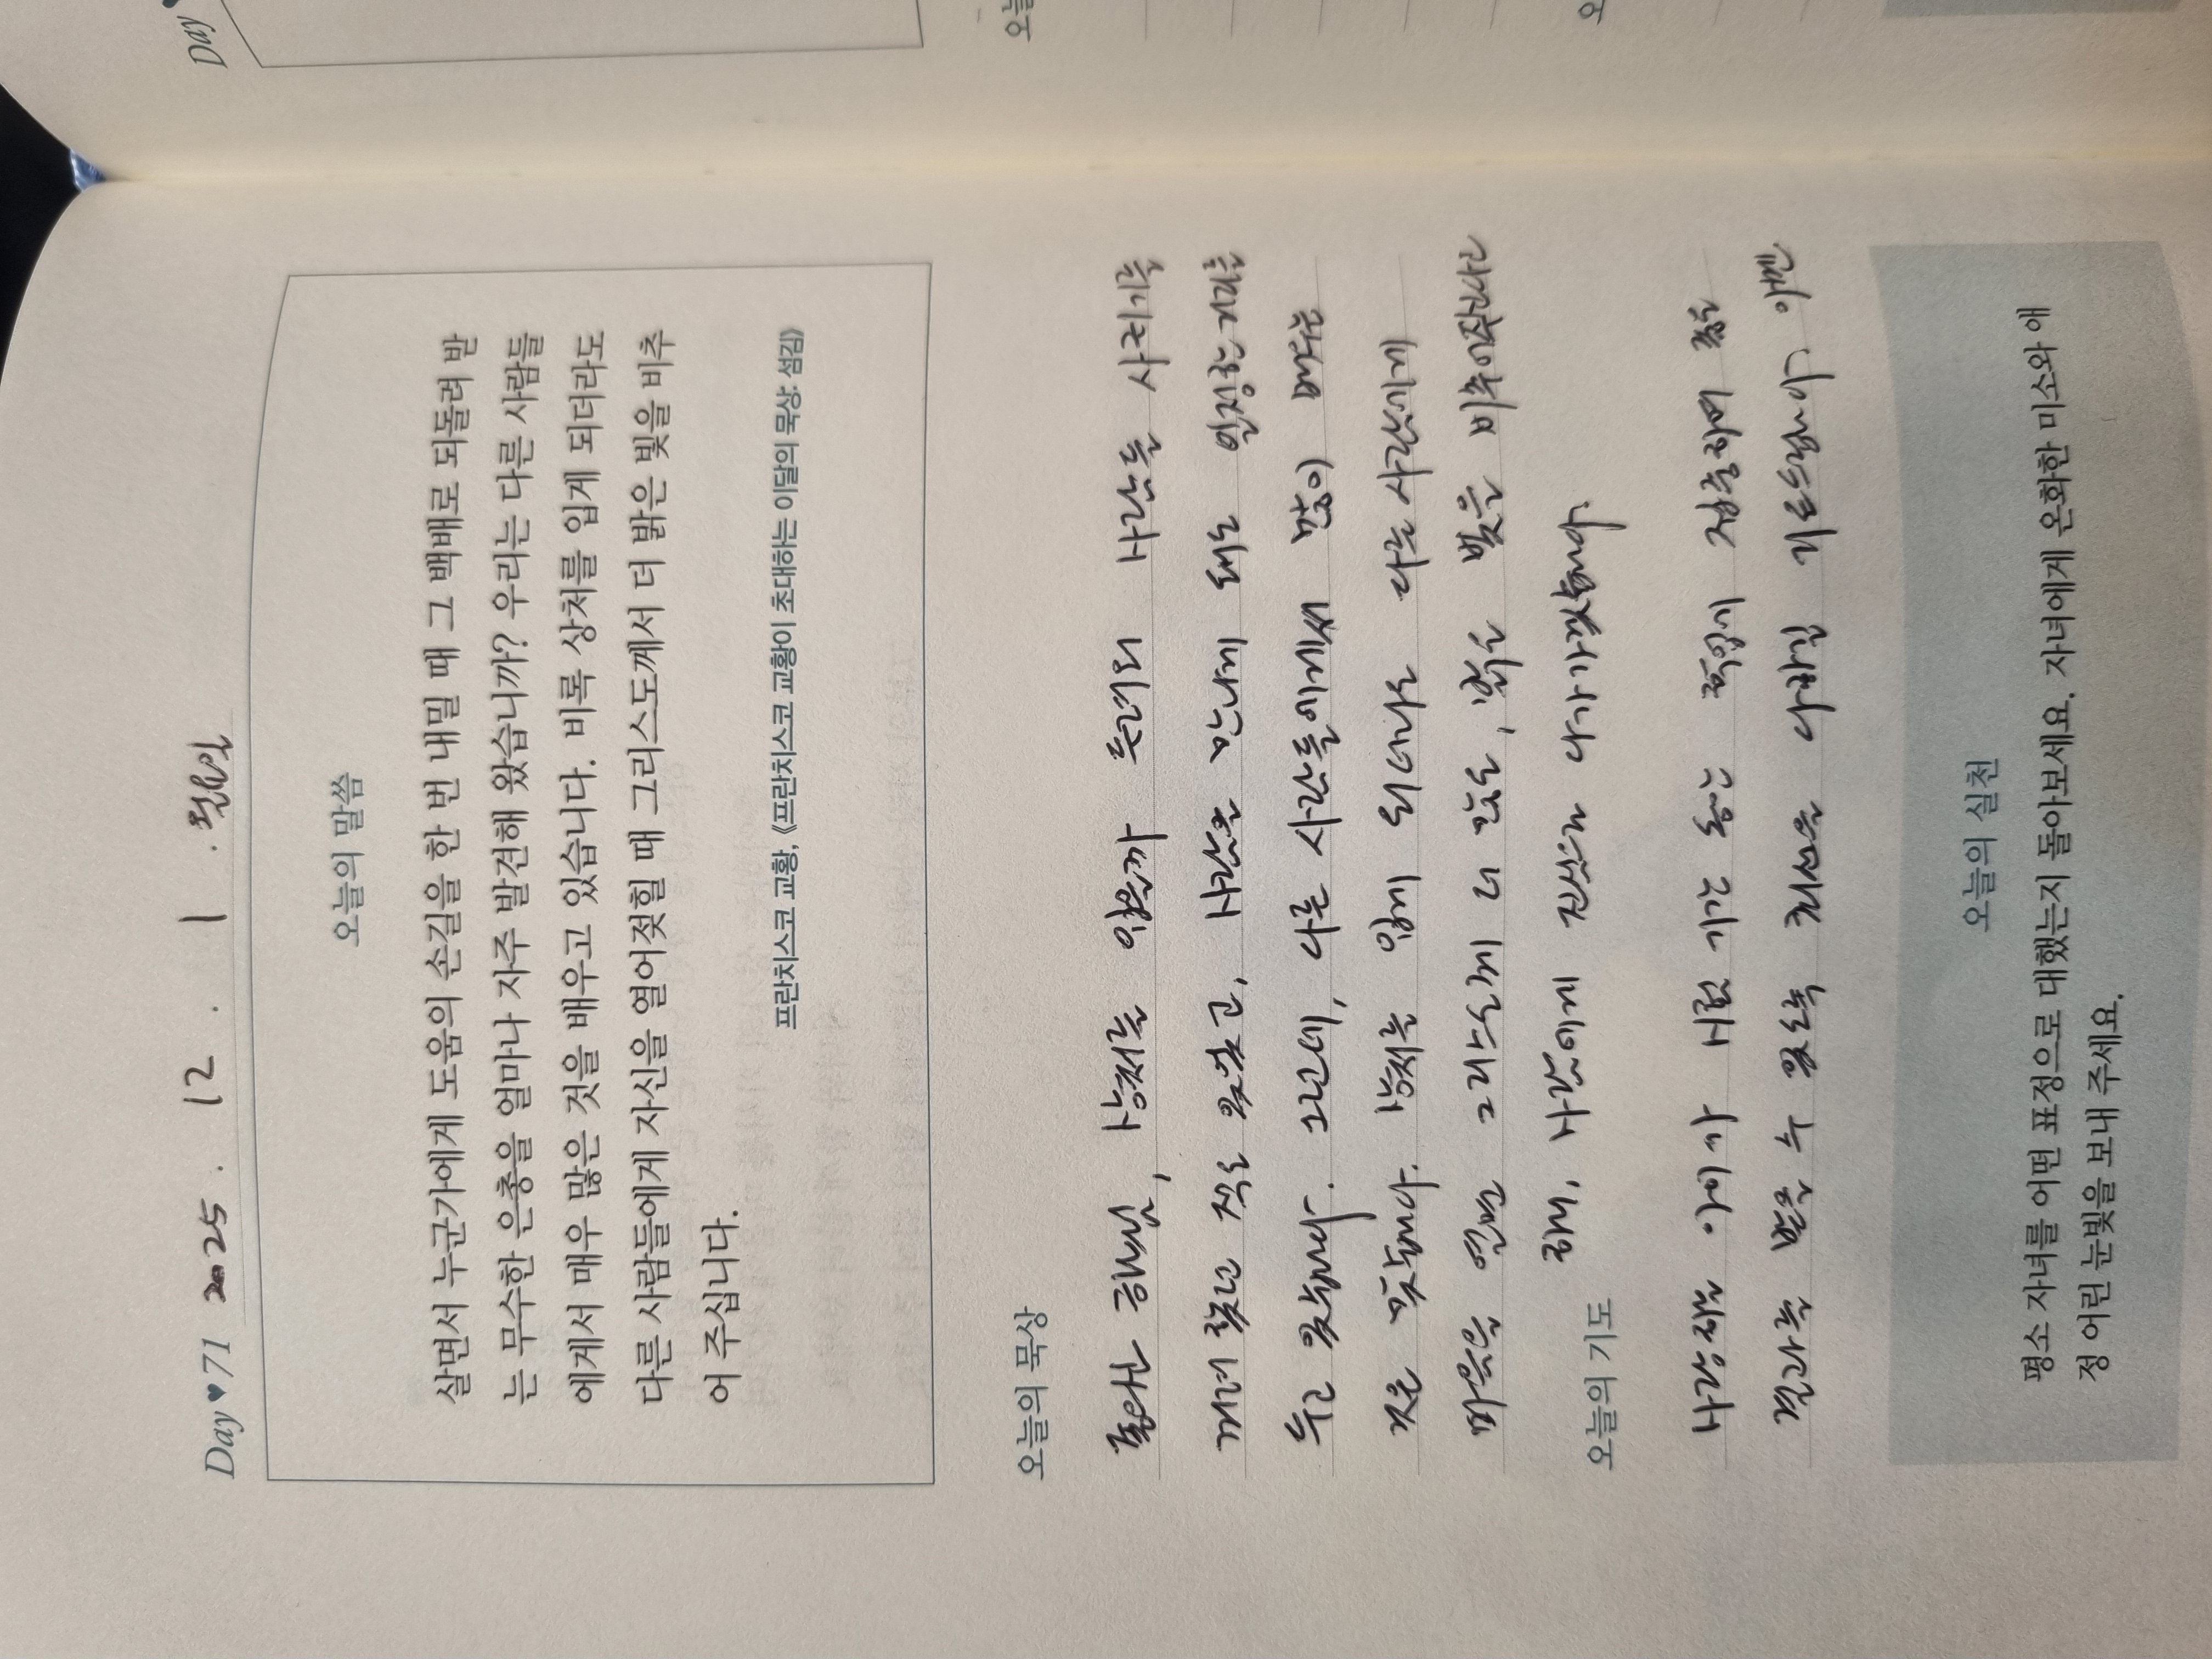 Day ♥ 71 2025 . 12 . 1 . 월요일
오늘의 말씀
살면서 누군가에게 도움의 손길을 한 번 내밀 때 그 백배로 되돌려 받
는 무수한 은총을 얼마나 자주 발견해 왔습니까? 우리는 다른 사람들
에게서 매우 많은 것을 배우고 있습니다. 비록 상처를 입게 되더라도
다른 사람들에게 자신을 열어젖힐 때 그리스도께서 더 밝은 빛을 비추
어 주십니다.
프란치스코 교황, 《프란치스코 교황이 초대하는 이달의 묵상: 섬김》
오늘의 묵상
하느님, 상처를 입을까 두려워 사람들 사귀기를
꺼려 했던 적도 있었고, 사람을 만나게 돼도 일정한 거리를
두고 있었습니다. 그런데, 다른 사람들에게서 많이 배우는
것은 맞습니다. 상처를 입게 되더라도 다른 사람에게
마음을 열면 그리스도께 더 밝은 빛을 비추어준다고
하니, 사람에게 진심으로 다가가겠습니다.
오늘의 기도
사랑하는 아이가 시험 기간 동안 집중하여 좋은
결과를 받을 수 있도록 최선을 다하길 기도드립니다. 아멘
오늘의 실천
평소 자녀를 어떤 표정으로 대했는지 돌아보세요. 자녀에게 온화한 미소와 애
정 어린 눈빛을 보내 주세요.
Day